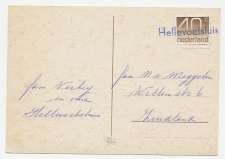 40c
nederland
Hellevoetsluis
Fam Verhey
en
Hellevoetsluis
Fam M v Meggelen
Willemstr 6
Zuidland